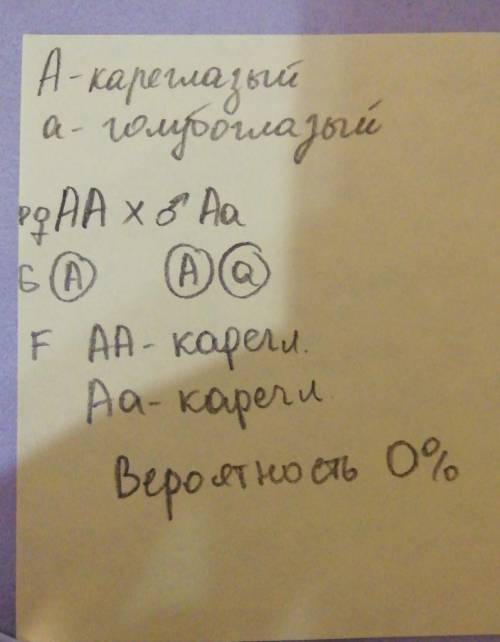 А - кареглазый
а - голубоглазый
P ♀ АА × ♂ Аа
G А А а
F АА - карегл.
Аа - карегл
Вероятность 0%